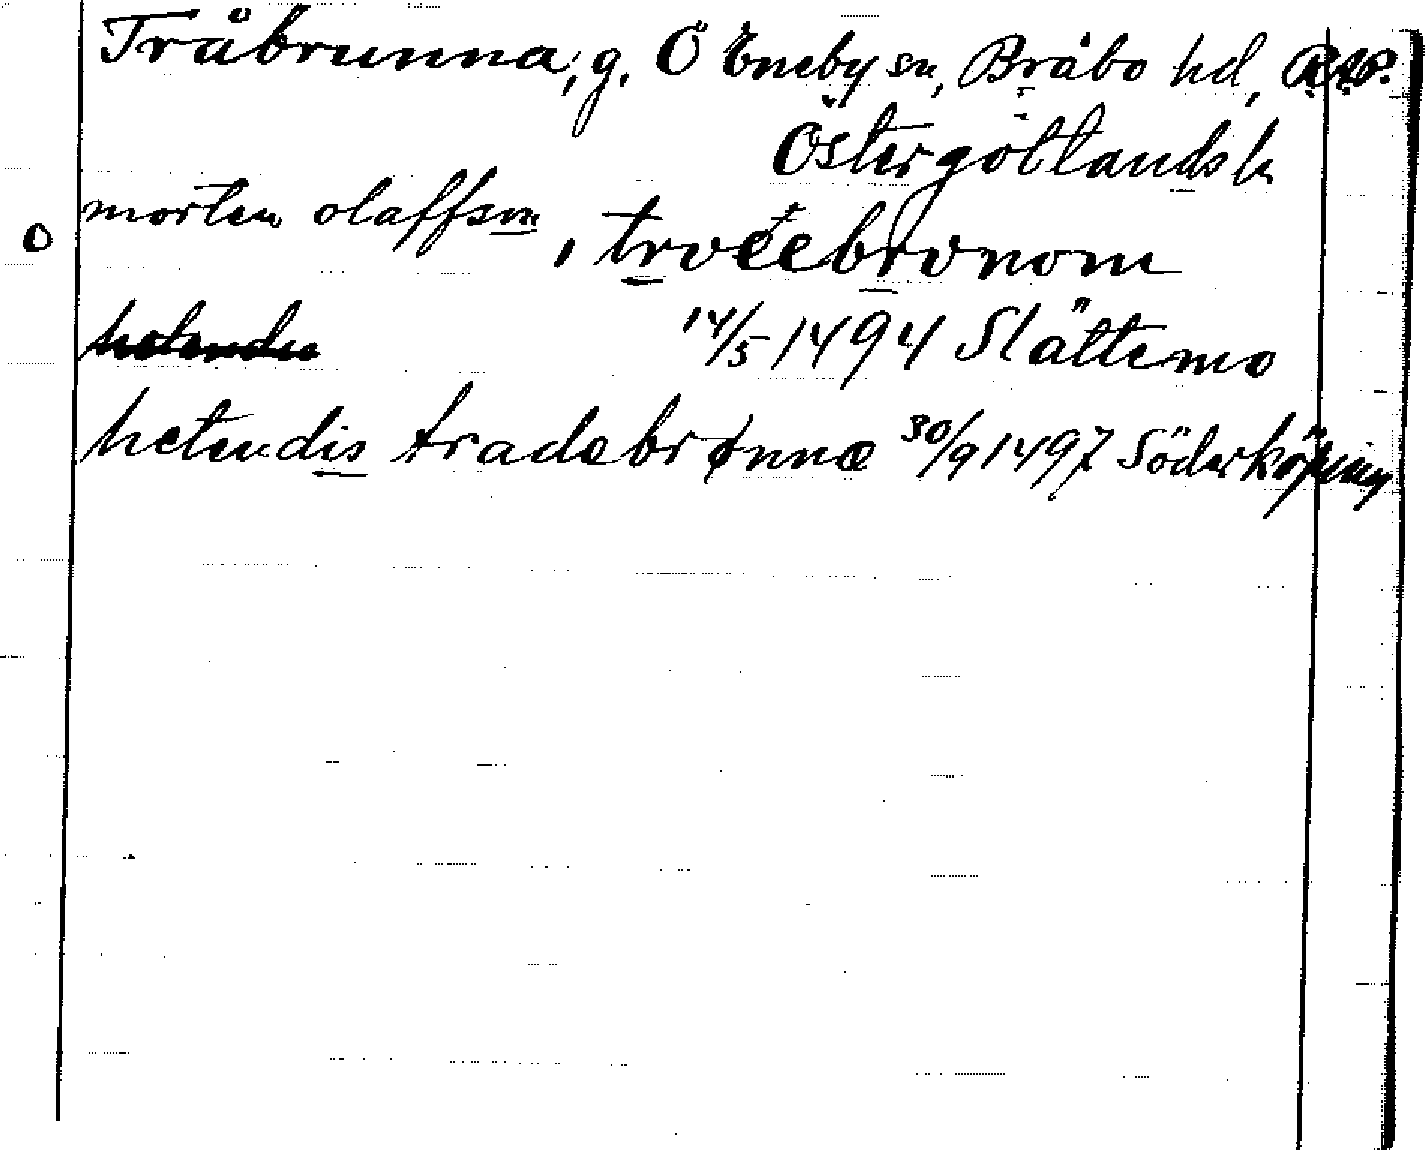 Tråbrunna, g. Ö Eneby sn, Bråbo hd, RAP.
Östergötlands l.
morten olaffsøn
o , trvéebrvnom
14/5 1494 Slättemo
hetendis tradebrønnæ 30/9 1497 Söderköping